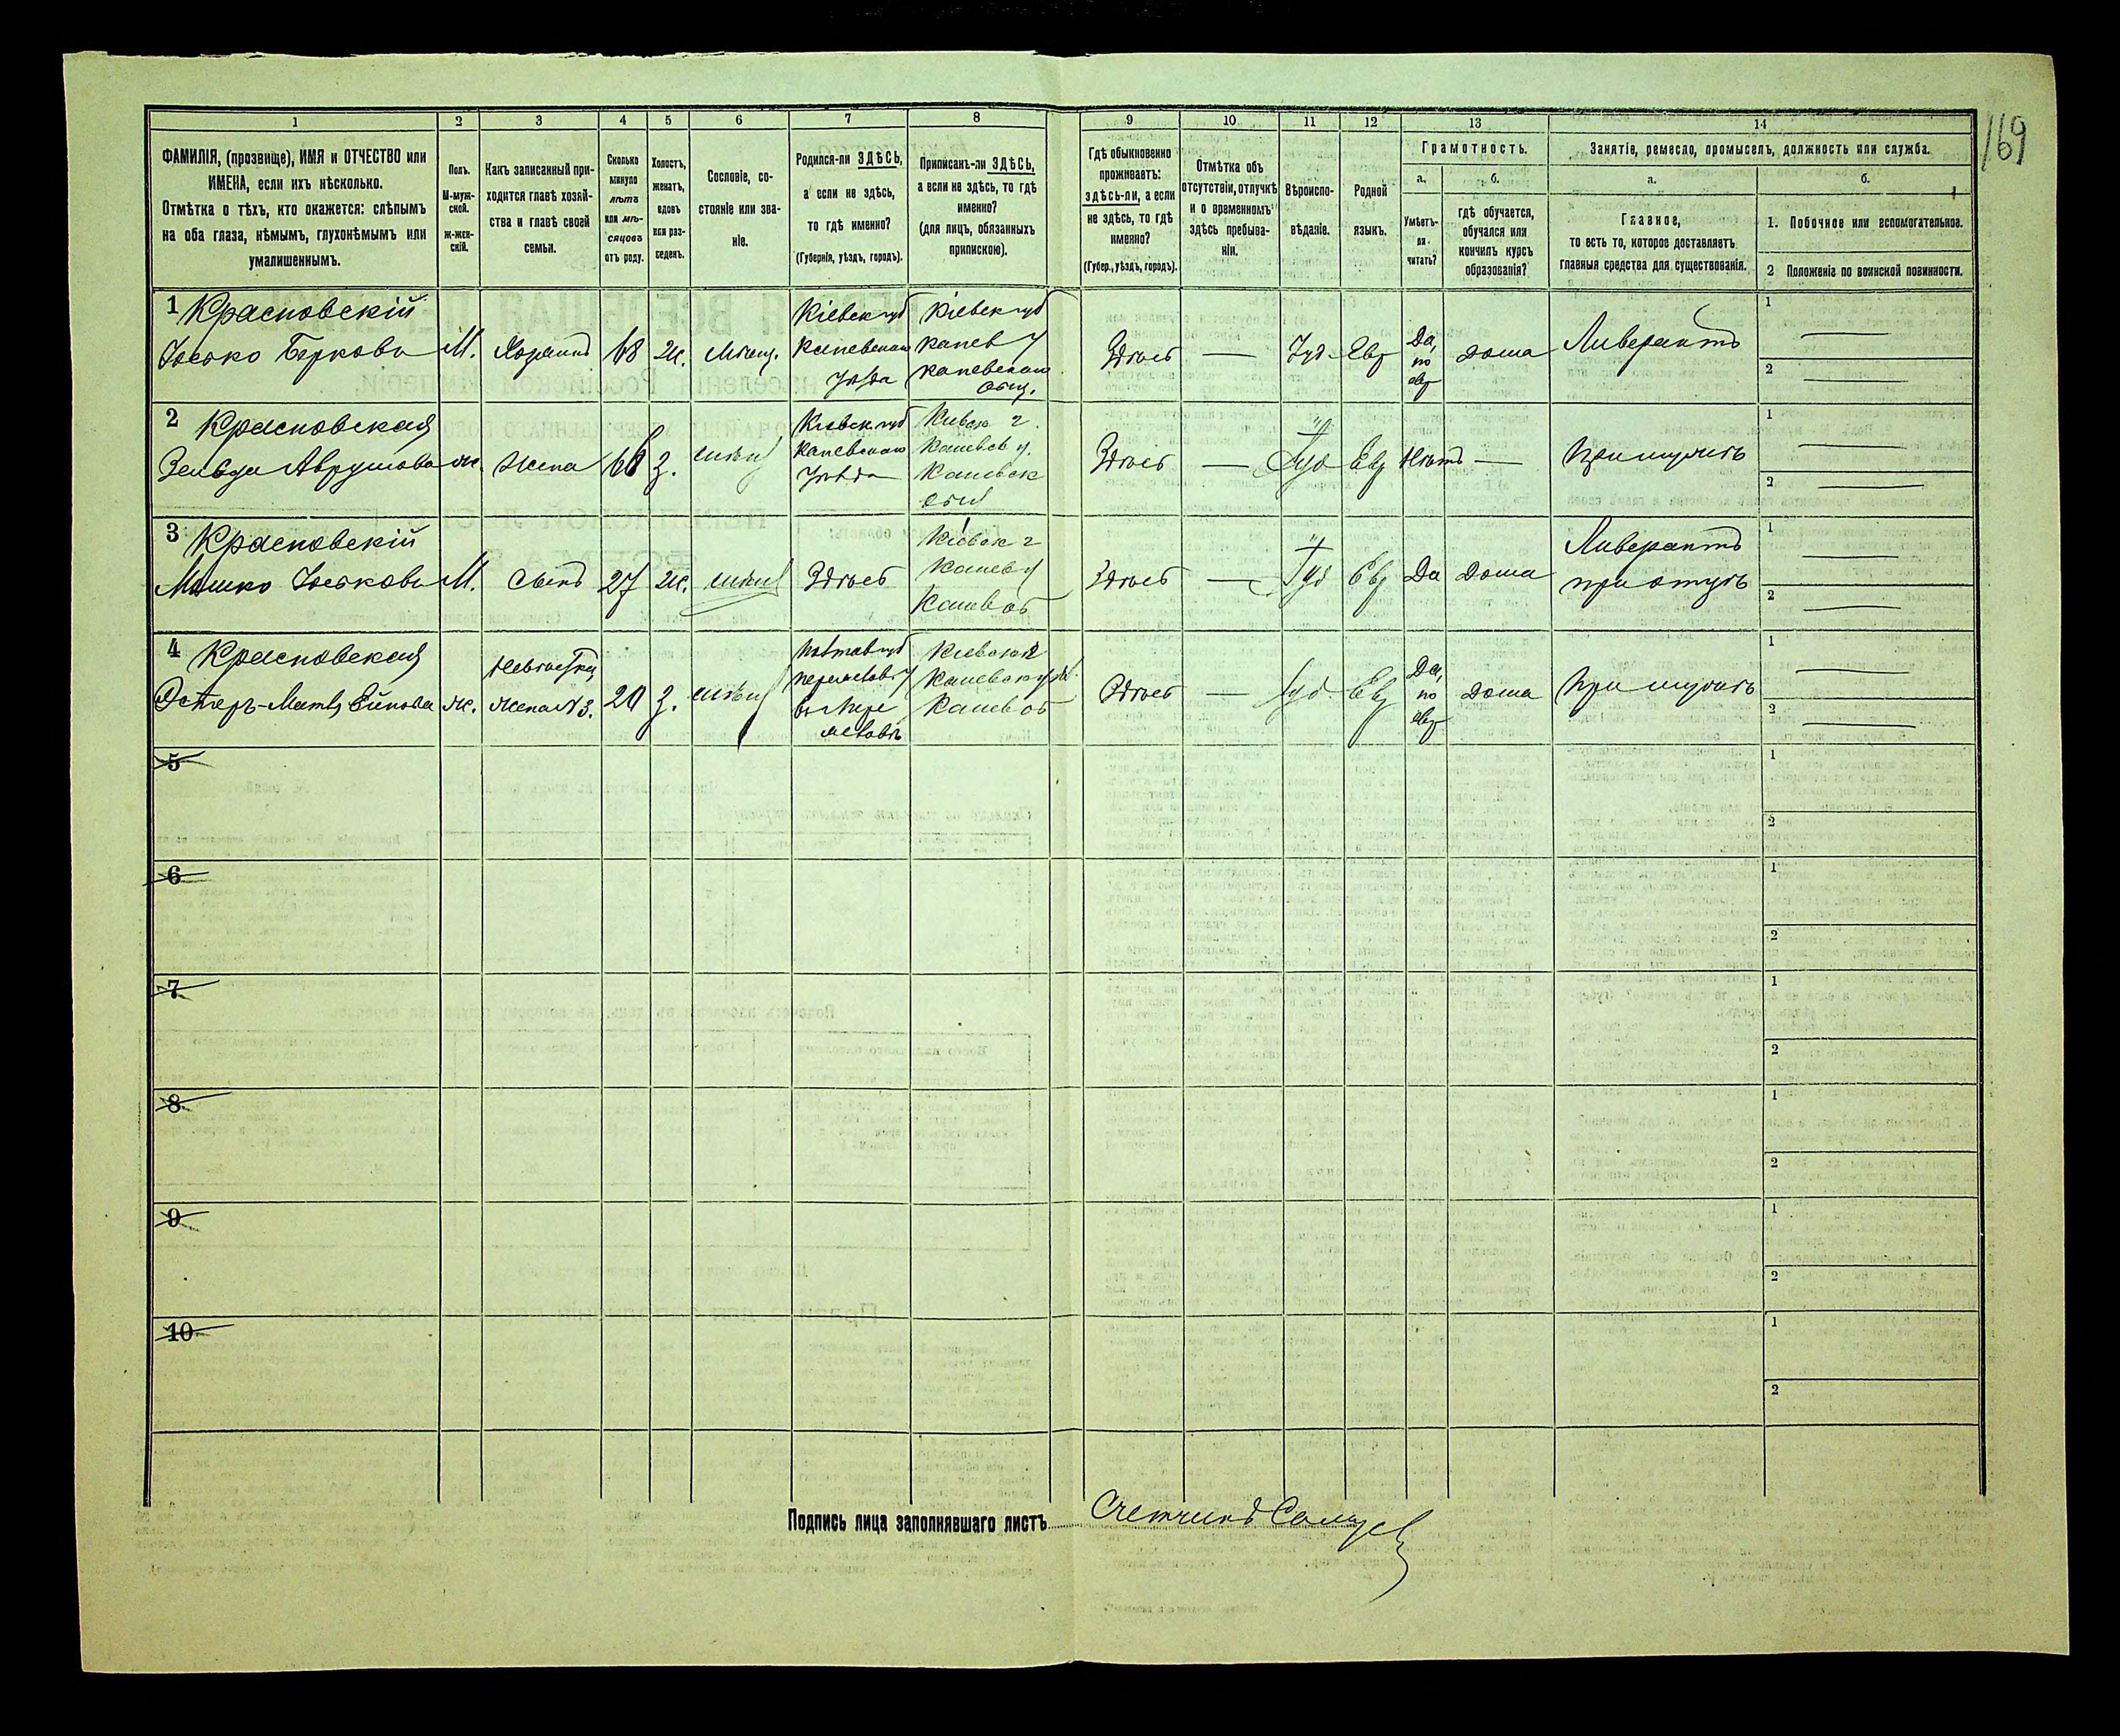 169
1 2 3 4 5 6 7 8 9 10 11 12 13 14
ФАМИЛІЯ, (прозвище), ИМЯ и ОТЧЕСТВО или
ИМЕНА, если ихъ нѣсколько.
Отмѣтка о тѣхъ, кто окажется: слѣпымъ
на оба глаза, нѣмымъ, глухонѣмымъ или
умалишеннымъ.
Полъ.
М-муж-
ской.
Ж-жен-
скій.
Какъ записанный при-
ходится главѣ хозяй-
ства и главѣ своей
семьи.
Сколько
минуло
лѣтъ
или мѣ-
сяцовъ
отъ роду.
Холостъ,
женатъ,
вдовъ
или раз-
веденъ.
Сословіе, со-
стояніе или зва-
ніе.
Родился-ли ЗДѢСЬ,
а если не здѣсь,
то гдѣ именно?
(Губернія, уѣздъ, городъ).
Приписанъ-ли ЗДѢСЬ,
а если не здѣсь, то гдѣ
именно?
(для лицъ, обязанныхъ
припискою).
Гдѣ обыкновенно
проживаетъ:
здѣсь-ли, а если
не здѣсь, то гдѣ
именно?
(Губер., уѣздъ, городъ).
Отмѣтка объ
отсутствіи, отлучкѣ
и о временномъ
здѣсь пребыва-
ніи.
Вѣроиспо-
вѣданіе.
Родной
языкъ.
Грамотность.
а.
Умѣетъ-
ли
читать?
б.
гдѣ обучается,
обучался или
кончилъ курсъ
образованія?
Занятіе, ремесло, промыселъ, должность или служба.
а.
Главное,
то есть то, которое доставляетъ
главныя средства для существованія.
б.
1. Побочное или вспомогательное.
2 Положеніе по воинской повинности.
1 Красновскій
Іосько Берковъ
М.
Хозяинъ
68
ж.
Мѣщ.
Кіевск губ
Каневскаго
Уѣзда
Кіевск губ
Канев у
Каневскаго
общ.
Здѣсь
—
Іуд.
Евр
Да,
по
евр
дома
Ливерантъ
1 —
2 —
2 Красновская
Зельда Аврумова
ж.
Жена
з.
Кіевск губ
Каневскаго
Уѣзда
Каневск
Здѣсь
—
Іуд
Евр
Нѣтъ
—
При мужѣ
1 —
2 —
3 Красновскій
Мошко Іоськовъ
М.
Сынъ
27
ж.
Здѣсь
Здѣсь
—
Іуд
Евр
Да
дома
Ливерантъ
при отцѣ
1 —
2 —
4 Красновская
ж.
Невѣстка
жена N 3.
20
з.
Здѣсь
—
Іуд
Евр
Да,
по
евр
дома
При мужѣ
1 —
2 —
5 1
2
6 1
2
7 1
2
8 1
2
9 1
2
10 1
2
Подпись лица заполнявшаго листъ Счетчикъ